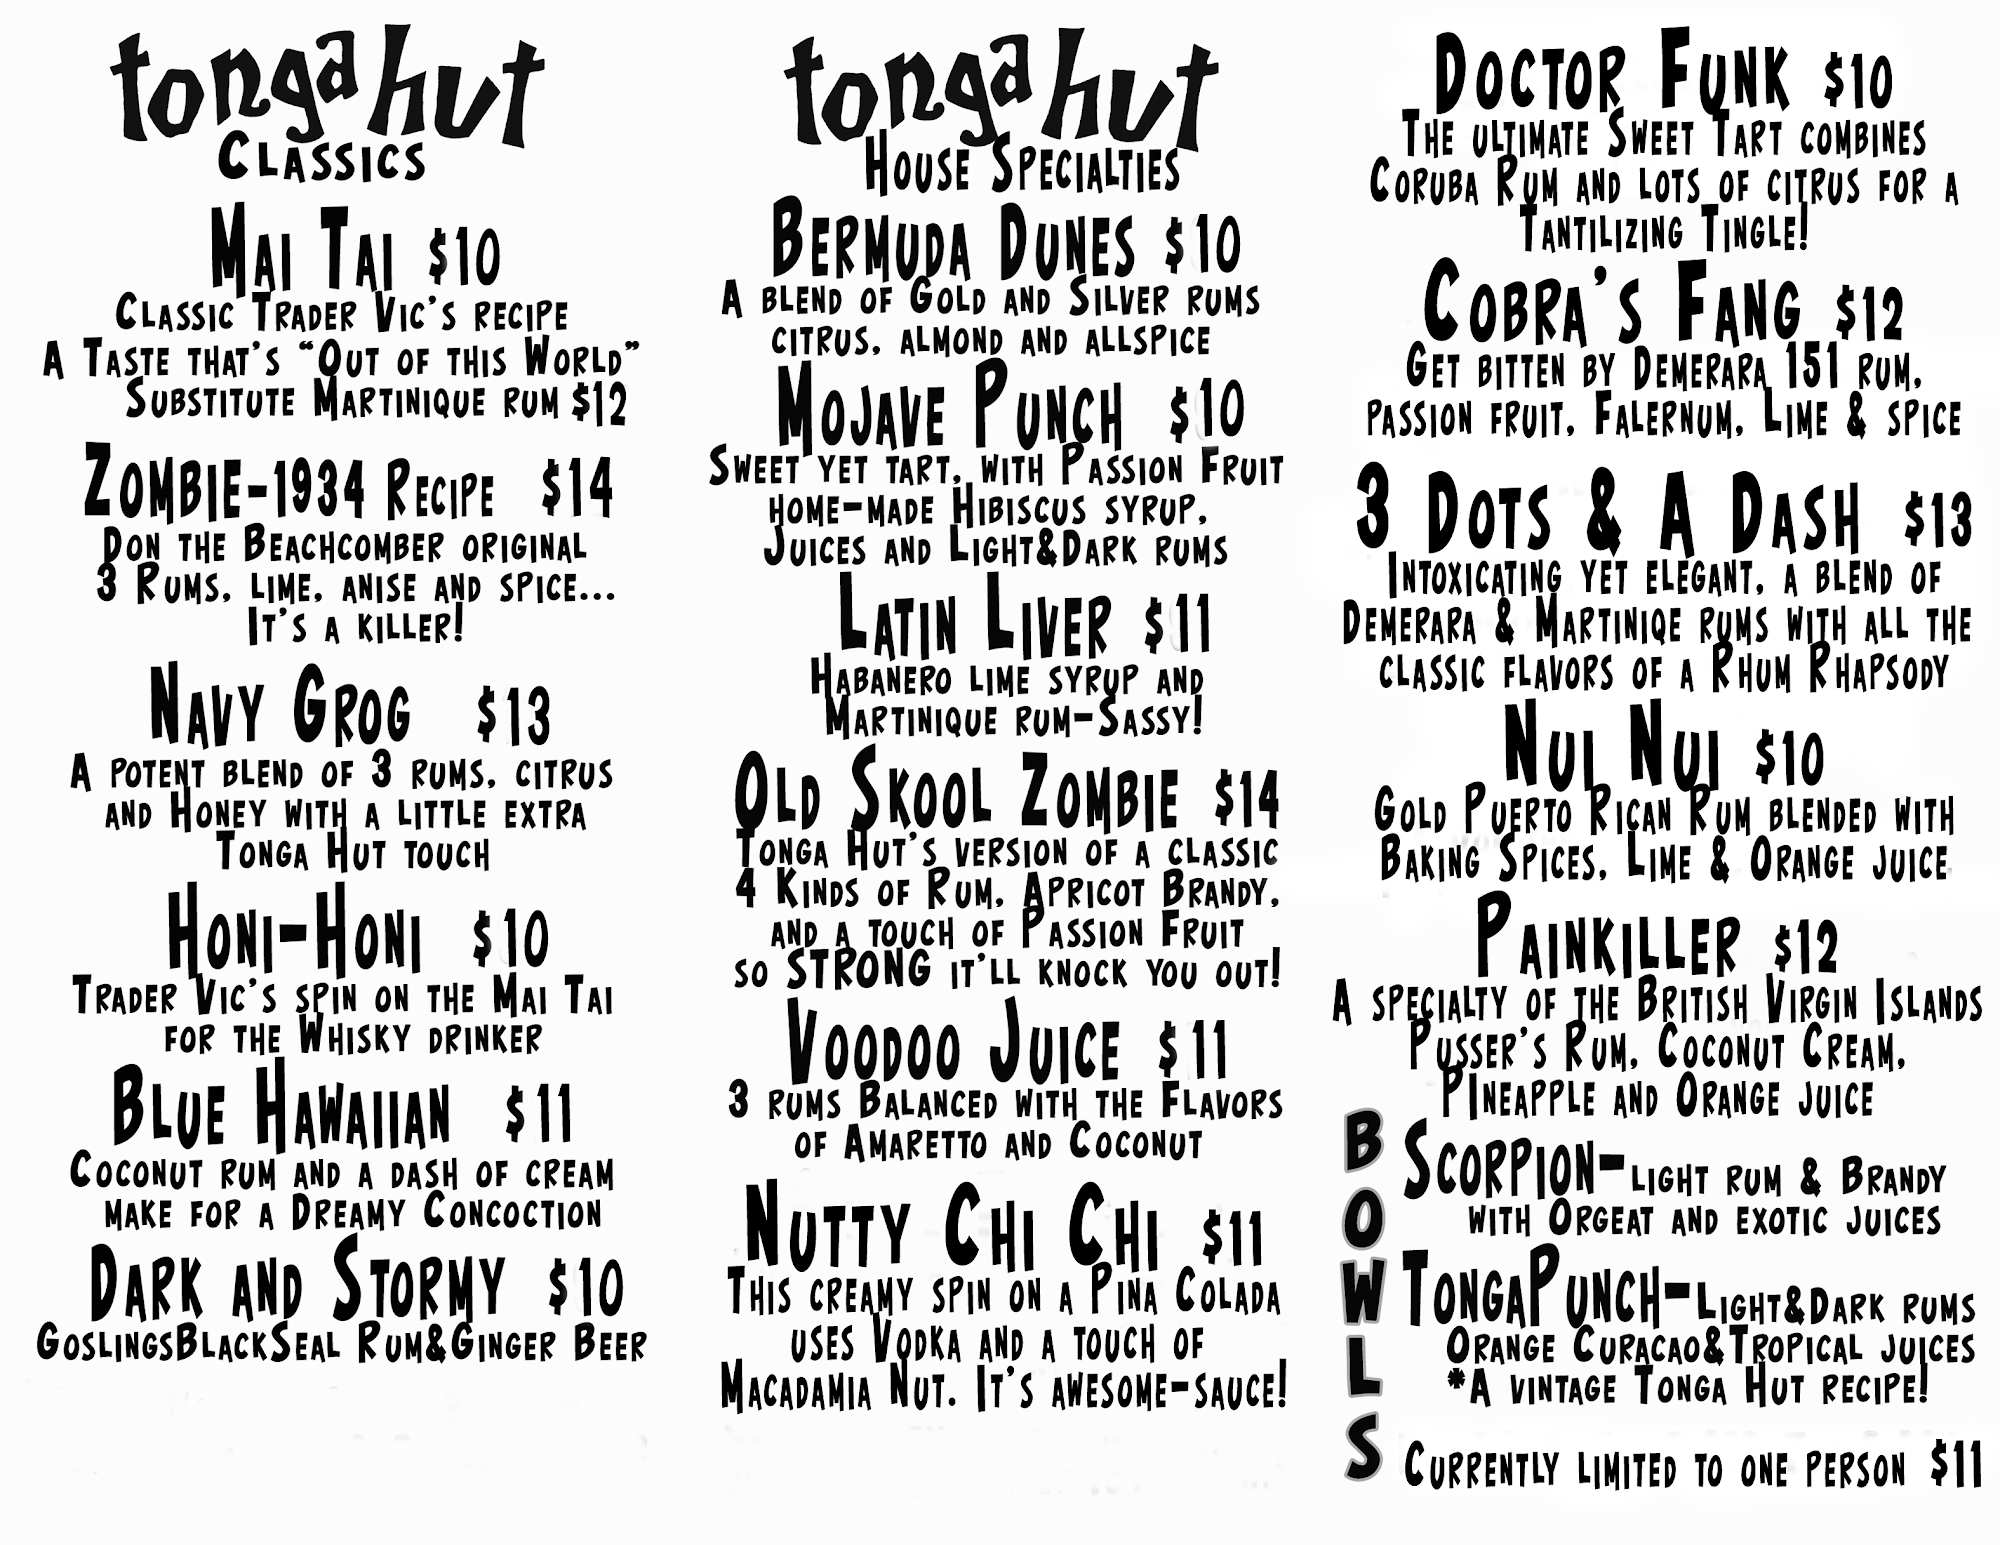 tonga hut
Classics
Mai Tai $10
Classic Trader Vic's recipe
A Taste that's "Out of this World"
Substitute Martinique rum $12
Zombie-1934 Recipe $14
Don the Beachcomber original
3 Rums, lime, anise and spice...
It's a killer!
Navy Grog $13
A potent blend of 3 rums, citrus
and Honey with a little extra
Tonga Hut touch
Honi-Honi $10
Trader Vic's spin on the Mai Tai
for the Whisky drinker
Blue Hawaiian $11
Coconut rum and a dash of cream
make for a Dreamy Concoction
Dark and Stormy $10
GoslingsBlackSeal Rum&Ginger Beer
tonga hut
House Specialties
Bermuda Dunes $10
A blend of Gold and Silver rums
citrus, almond and allspice
Mojave Punch $10
Sweet yet tart, with Passion Fruit
home-made Hibiscus syrup,
Juices and Light&Dark rums
Latin Liver $11
Habanero lime syrup and
Martinique rum-Sassy!
Old Skool Zombie $14
Tonga Hut's version of a classic
4 Kinds of Rum, Apricot Brandy,
and a touch of Passion Fruit
so STRONG it'll knock you out!
Voodoo Juice $11
3 rums Balanced with the Flavors
of Amaretto and Coconut
Nutty Chi Chi $11
This creamy spin on a Pina Colada
uses Vodka and a touch of
Macadamia Nut. It's awesome-sauce!
Doctor Funk $10
The ultimate Sweet Tart combines
Coruba Rum and lots of citrus for a
Tantilizing Tingle!
Cobra's Fang $12
Get bitten by Demerara 151 rum,
passion fruit, Falernum, Lime & spice
3 Dots & A Dash $13
Intoxicating yet elegant, a blend of
Demerara & Martiniqe rums with all the
classic flavors of a Rhum Rhapsody
Nui Nui $10
Gold Puerto Rican Rum blended with
Baking Spices, Lime & Orange juice
Painkiller $12
A specialty of the British Virgin Islands
Pusser's Rum, Coconut Cream,
PIneapple and Orange juice
BOWLS
Scorpion-light rum & Brandy
with Orgeat and exotic juices
TongaPunch-Light&Dark rums
Orange Curacao&Tropical juices
*A vintage Tonga Hut recipe!
Currently limited to one person $11